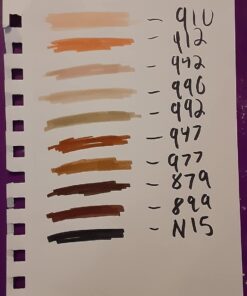 - 910
- 912
- 942
- 990
- 992
- 947
- 977
- 879
- 899
- N15